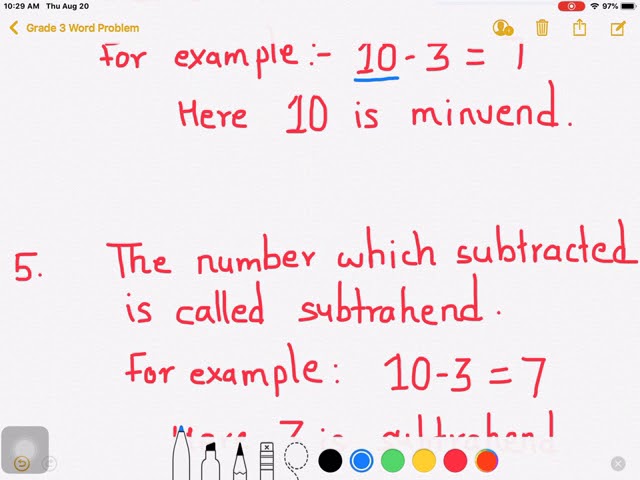 10:29 AM Thu Aug 20
97%
Grade 3 Word Problem
For example :- 10 - 3 =
Here 10 is minvend.
5. The number which subtracted
is called subtrahend.
For example: 10-3 = 7
is subtrahend